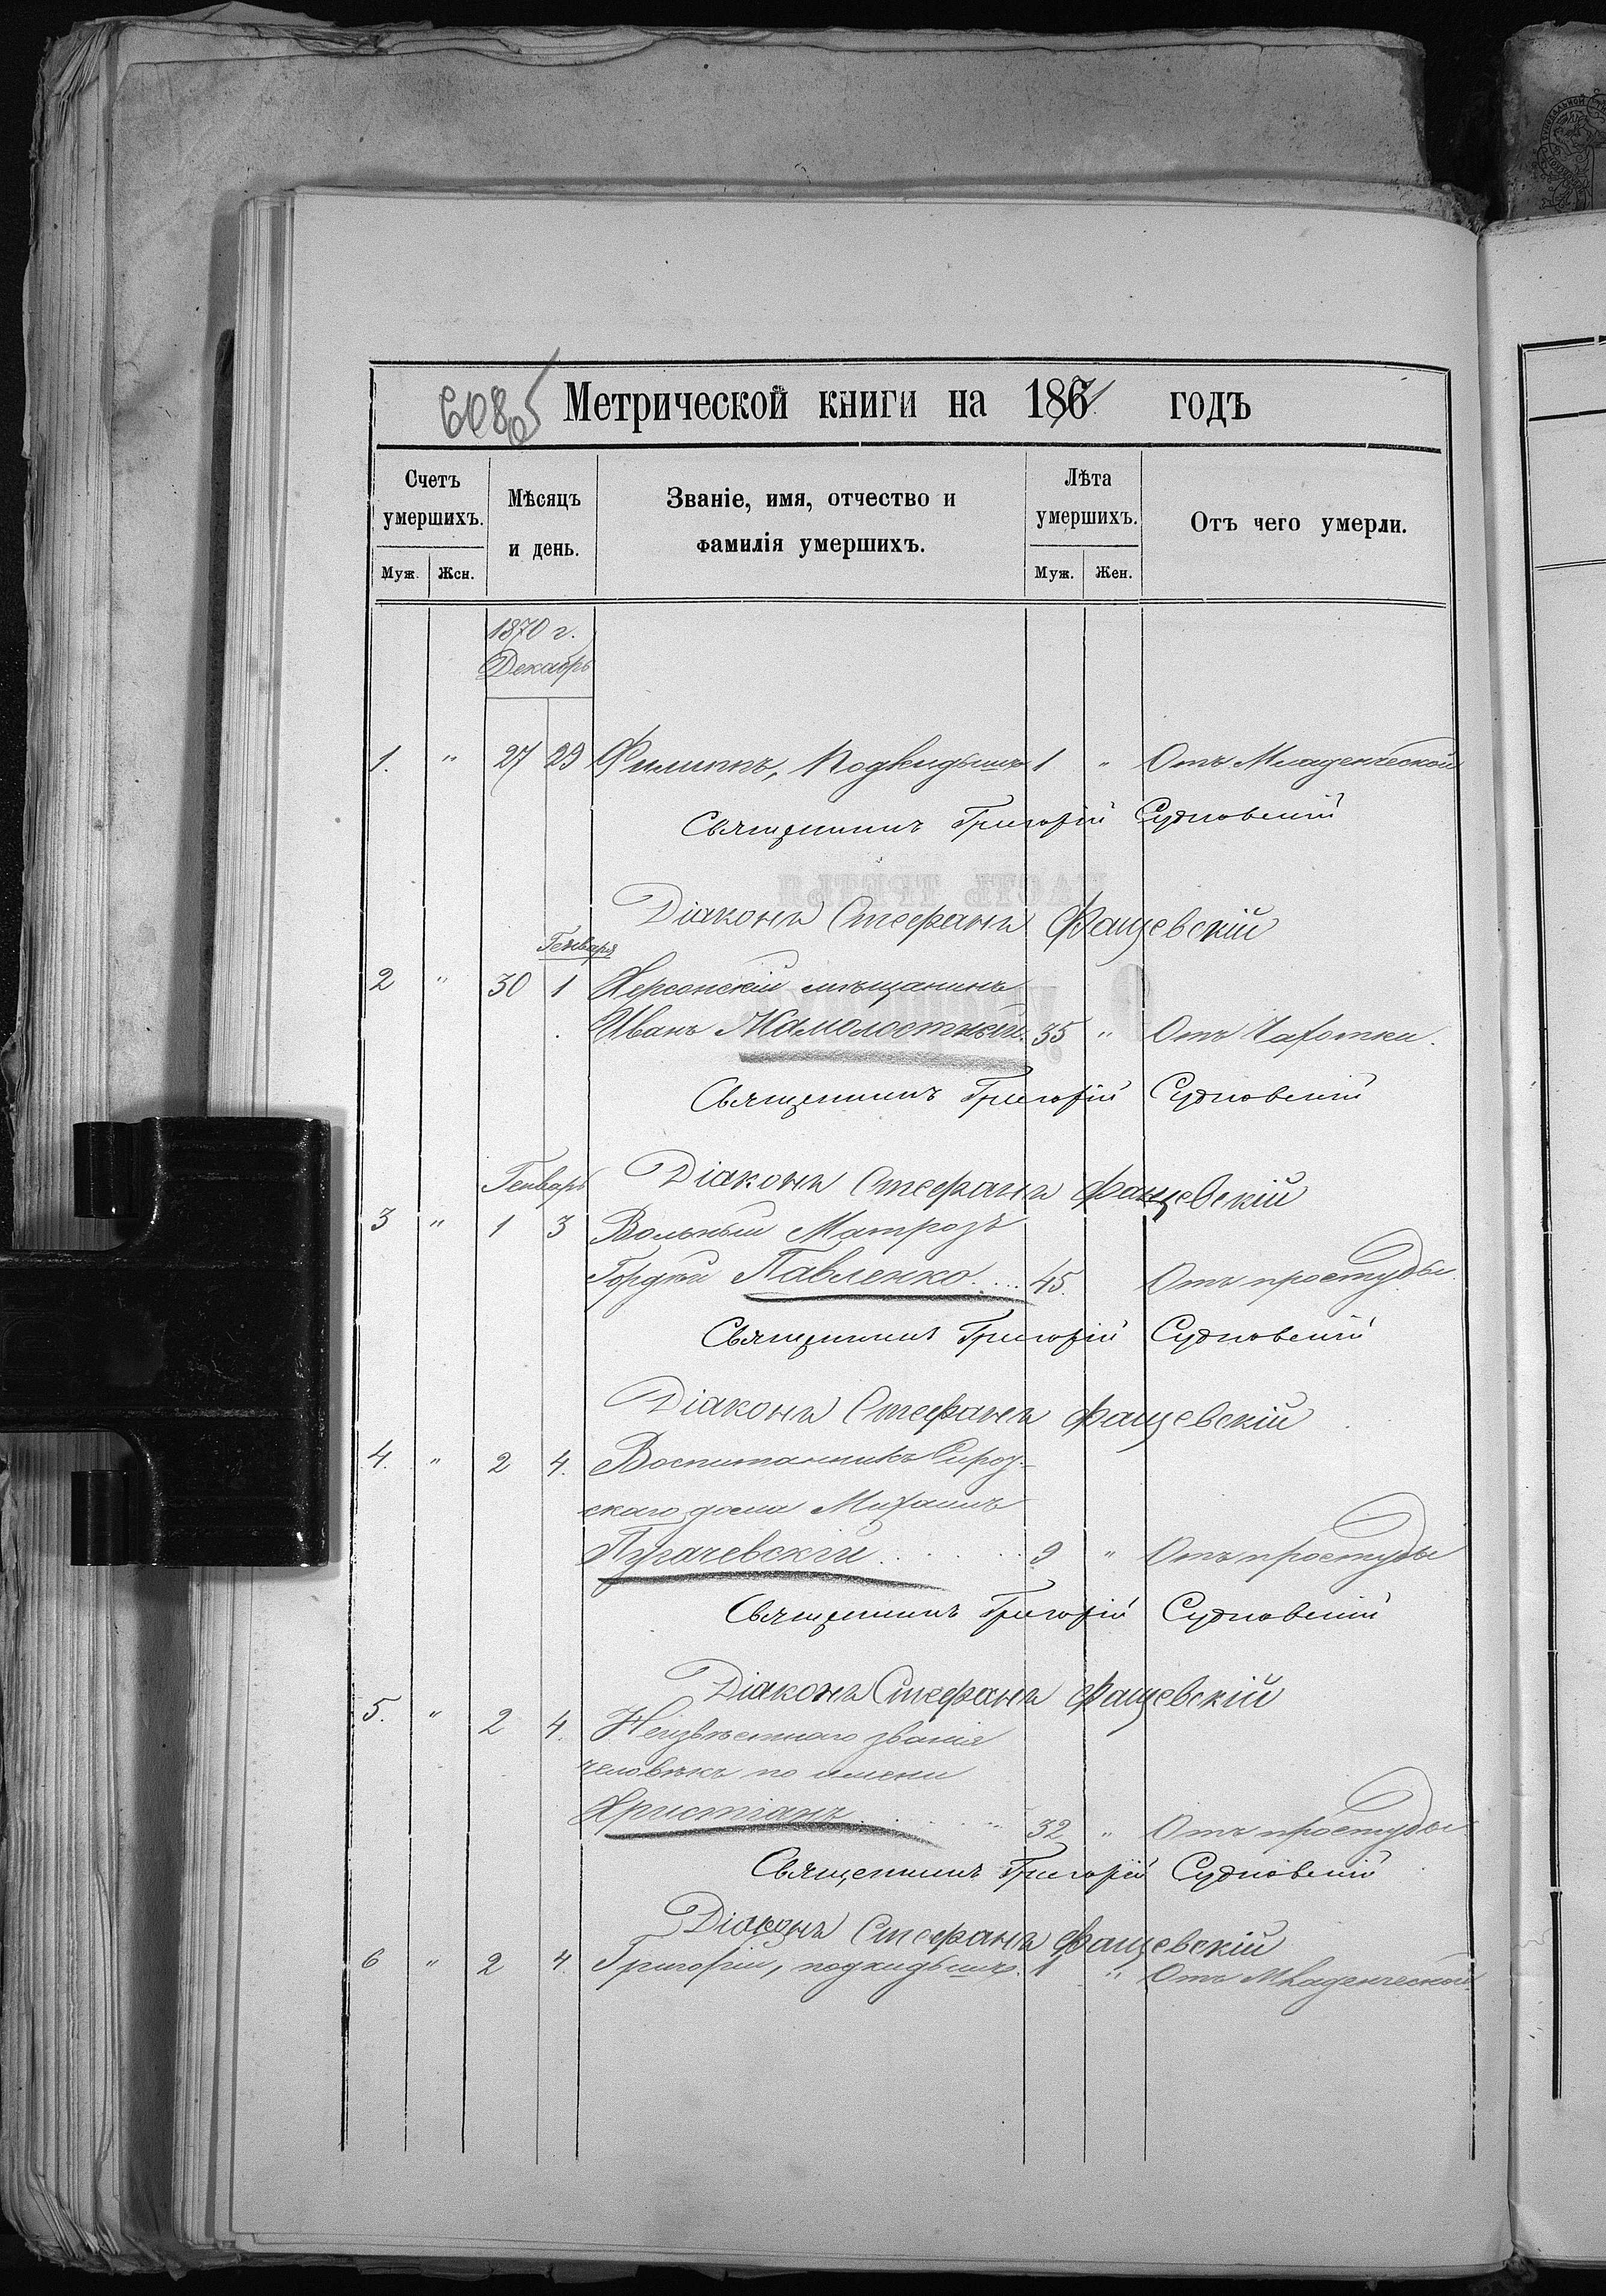 Метрической книги на 1871 годъ
Счетъ умершихъ.
Мѣсяцъ и день.
Званіе, имя, отчество и фамилія умершихъ.
Лѣта умершихъ.
Отъ чего умерли.
Муж. Жен.
Муж. Жен.
1870 г.
Декабрь
1. " 27 29 Филиппъ, Подкидышъ 1 " Отъ Младенческой
Священникъ Григорій Судковскій
Діаконъ Стефанъ Фащевскій
Генваря
2 " 30 1 Херсонскій мѣщанинъ
Иванъ 35 " Отъ Чахотки.
Священникъ Григорій Судковскій
Діаконъ Стефанъ Фащевскій
Генварь
3 " 1 3 Вольный Матрозъ
Гордѣй Павленко 45. Отъ простуды
Священникъ Григорій Судковскій
Діаконъ Стефанъ Фащевскій
4. " 2 4. Воспитанникъ Сирот-
скаго дома Михаилъ
Пугачевскій 9 " Отъ простуды
Священникъ Григорій Судковскій
Діаконъ Стефанъ Фащевскій
5. " 2 4. Неизвѣстнаго званія
человѣкъ по имени
Христіанъ 32 " Отъ простуды
Священникъ Григорій Судковскій
Діаконъ Стефанъ Фащевскій
6 " 2 4. Григорій, подкидышъ. 1 " Отъ Младенческой